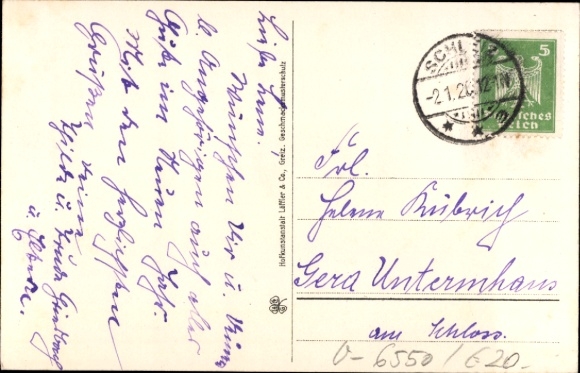 Liebe Lene.
Wünschen Dir u. Deinen
l. Angehörigen auch alles
Gute im Neuen Jahr
Mit den herzlichsten
Grüßen Deine
Hilde u.
u. Eltern.
Hofkunstanstalt Löffler & Co., Greiz. Geschmacksmusterschutz
SCHLEIZ
-2.1.26.12-
5
Deutsches
Frl.
Helene Kübrich
Gera Untermhaus
am Schloss.
6550/620.-